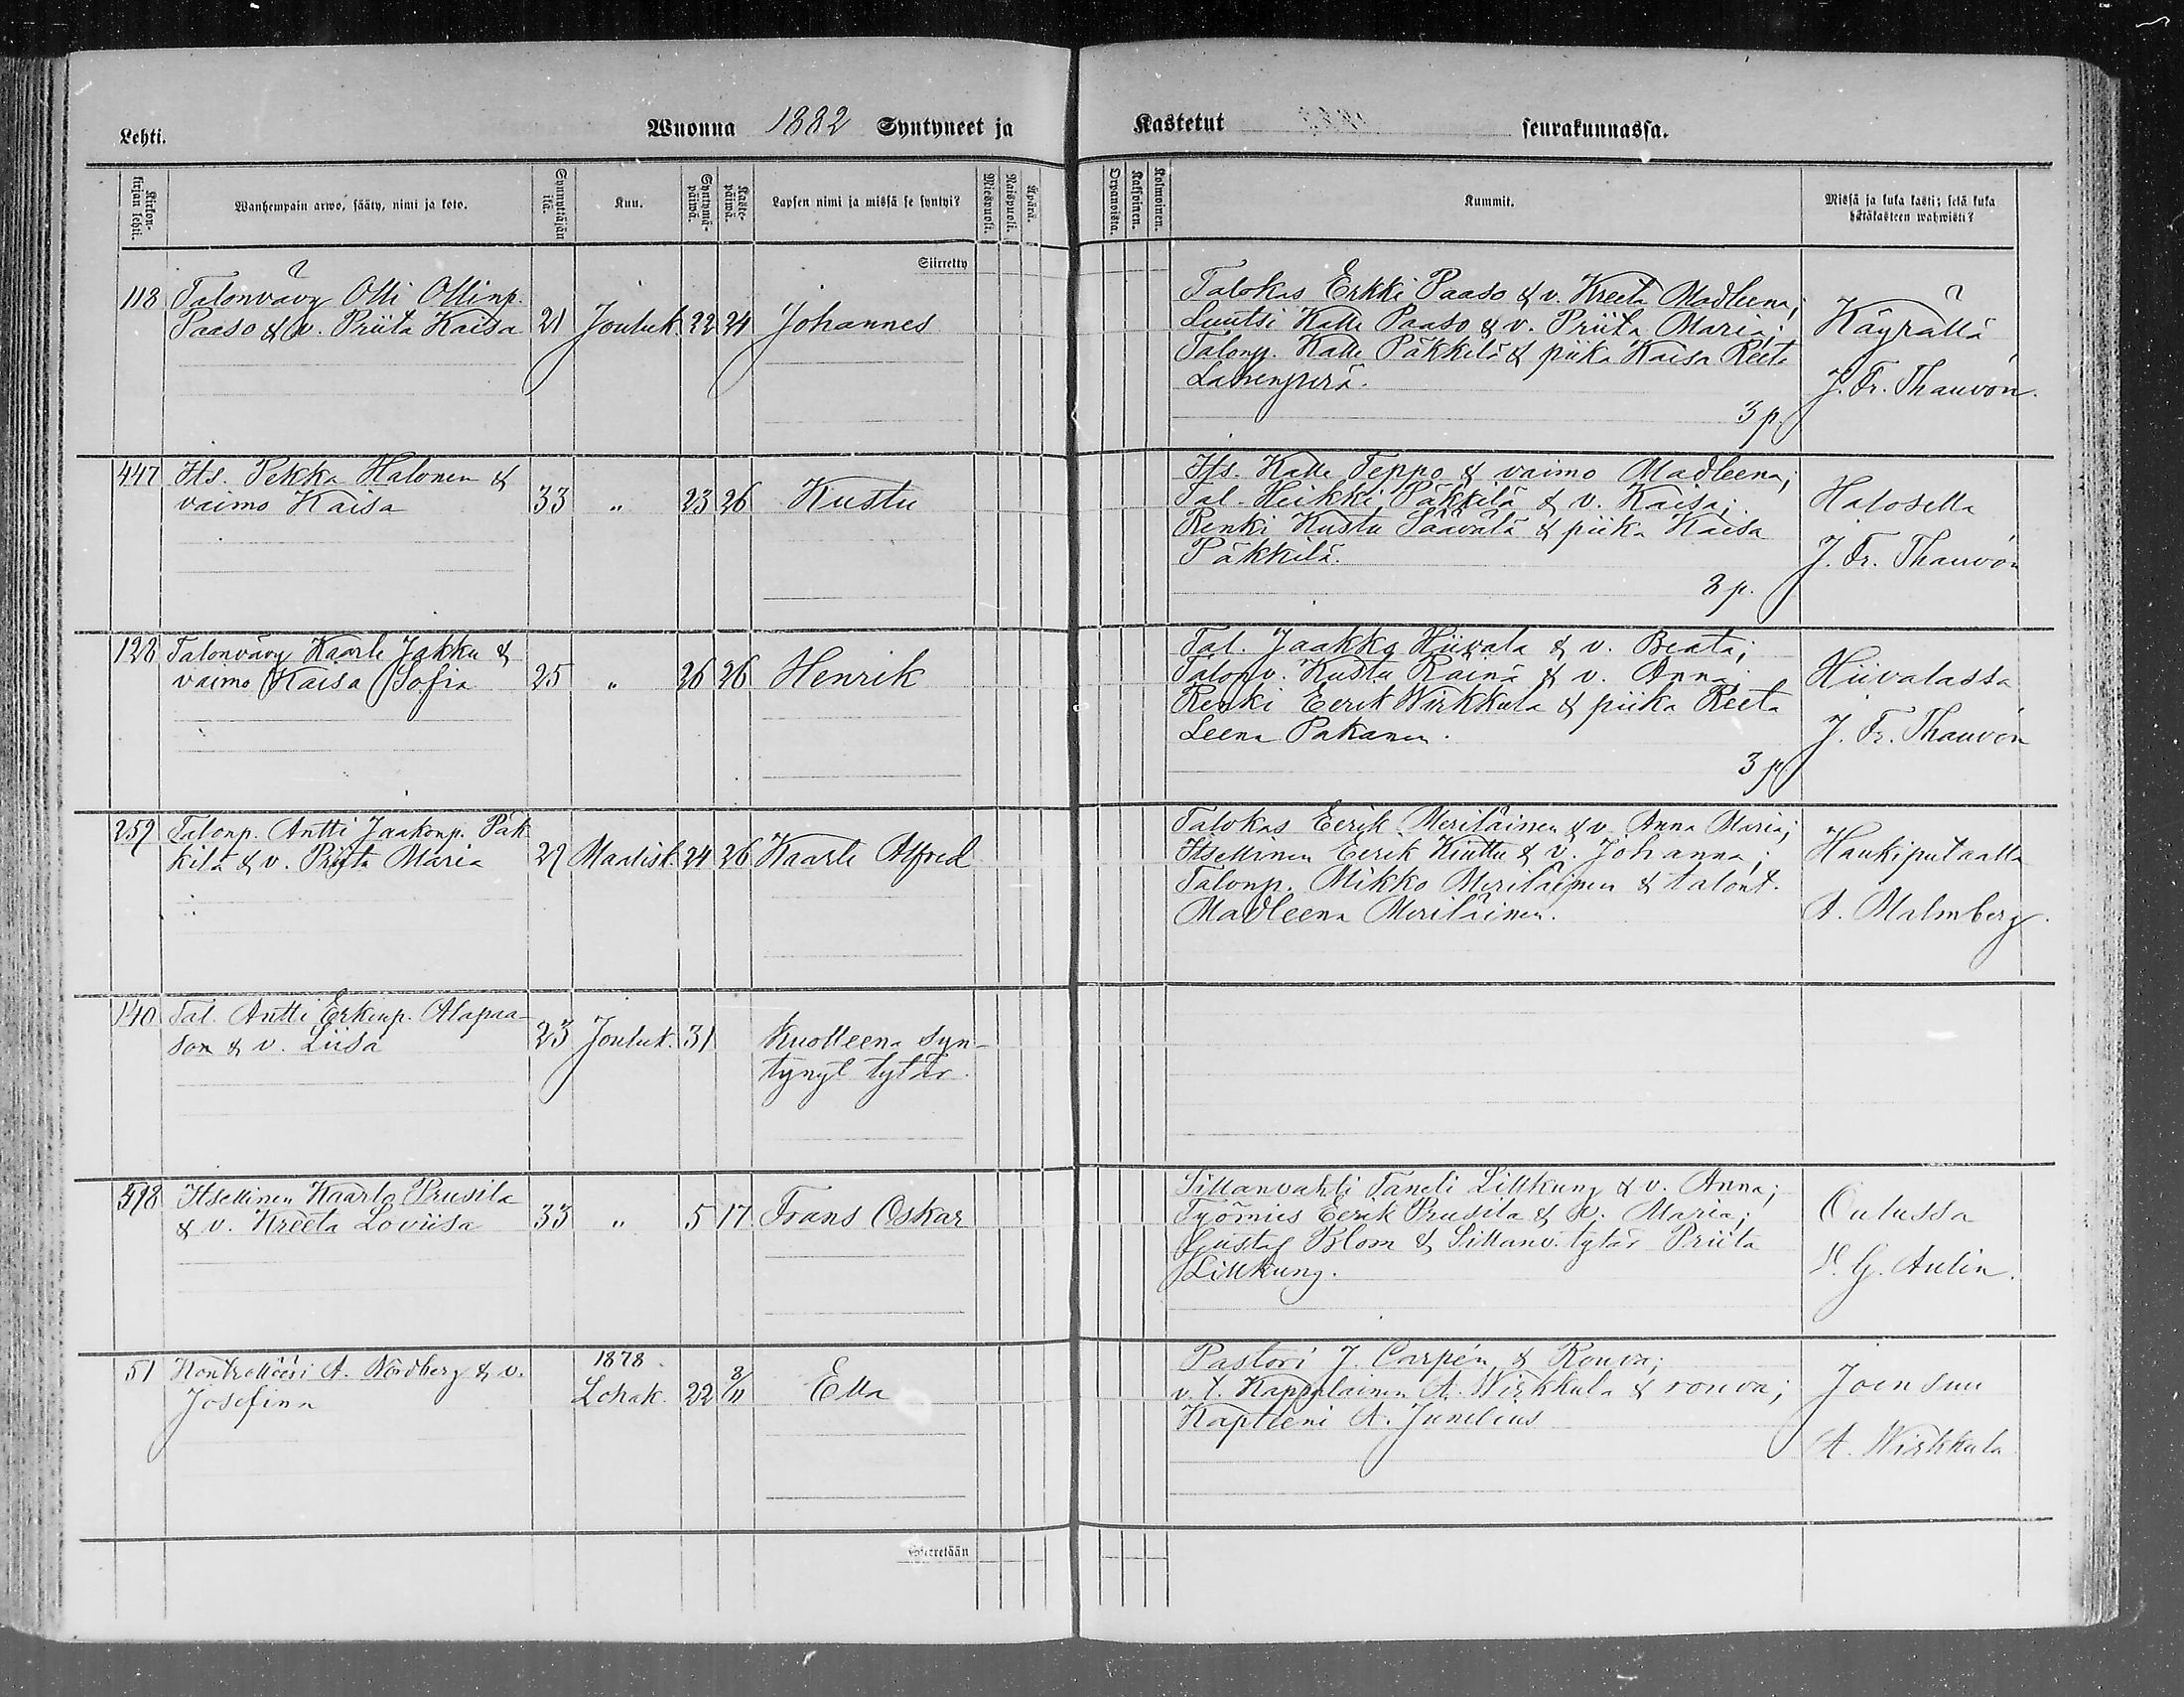 Lehti. Wuonna 1882 Syntyneet ja
Kastetut seurakunnassa.
Kirkon-kirjan lehti. Wanhempain arwo, sääty, nimi ja koto. Synnyttäjän ikä. Kuu. Syntymä-päiwä. Kaste-päiwä. Lapsen nimi ja missä se syntyi? Miespuoli. Naispuoli. Äpärä.
Orpanoista. Kaksoinen. Kolmoinen. Kummit. Missä ja kuka kasti; sekä kuka hätäkasteen wahwisti?
Siirretty
118 Talonvävy Olli Ollinp.
Paaso & v. Priita Kaisa 21 Jouluk. 22 24 Johannes
Talokas Erkki Paaso & v. Kreeta Madleena;
Luutsi Kalle Paaso & v. Priita Maria;
Talonp. Kalle Päkkilä & piika Kaisa Reeta
3 p.
Käyrällä
J. Fr. Thauvón.
447 Its. Pekka Halonen &
vaimo Kaisa 33 " 23 26 Kustu
Its. Kalle Teppo & vaimo Madleena;
Tal. Heikki Päkkilä & v. Kaisa;
Renki Kustu Säävälä & piika Kaisa
Päkkilä.
3 p.
Halosella
J. Fr. Thauvón
128 Talonvävy Kaarle Jakku &
vaimo Kaisa Sofia 25 " 26 26 Henrik
Tal. Jaakko Hiivala & v. Beata;
Talonv. Kustu Rainä & v. Anna;
Renki Eerik Wirkkula & piika Reeta
Leena Pakanen.
3 p.
Hiivalassa
J. Fr. Thauvón
259 Talonp. Antti Jaakonp. Päk
kilä & v. Priita Maria 27 Maalisk. 24 26 Kaarle Alfred
Talokas Eerik Meriläinen & v. Anna Maria;
Itsellinen Eerik Kiuttu & v. Johanna;
Talonp. Mikko Meriläinen & talont.
Madleena Meriläinen.
Haukiputaalla
A. Malmberg.
140 Tal. Antti Erkinp. Alapaa-
son & v. Liisa 23 Jouluk. 31 Kuolleena syn-
tynyt tytär.
518 Itsellinen Kaarlo Prusila
& v. Kreeta Loviisa 33 " 5 17 Frans Oskar
Sillanvahti Taneli Lillkung & v. Anna;
Työmies Eerik Prusila & v. Maria;
Gustaf Blom & Sillanv. tytär Priita
Lillkung.
Oulussa
G. Aulin.
51 Kontrollööri A. Nordberg & v.
Josefina 1878.
Lokak. 22 3/11 Ella
Pastori J. Carpén & Rouva;
v. t. Kappalainen A. Wirkkula & rouva;
Kapteeni A. Junelius
Joensuu
A. Wirkkula
Siirretään